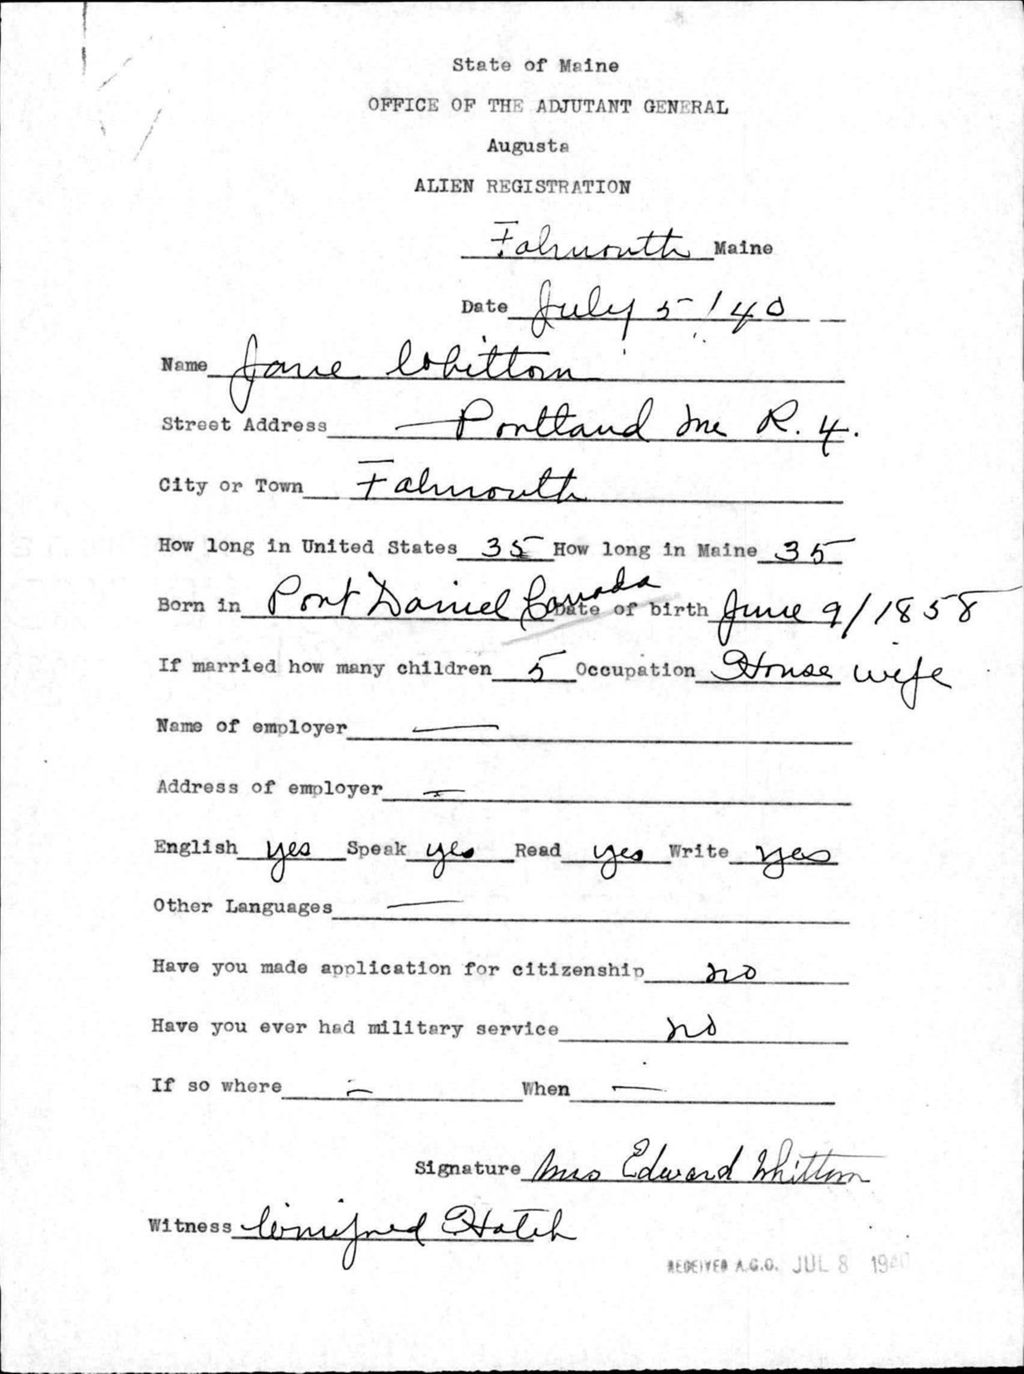 State of Maine
OFFICE OF THE ADJUTANT GENERAL
Augusta
ALIEN REGISTRATION
Falmouth Maine
Date July 5 / 40
Name Jane Whittom
Street Address Portland Me R. 4.
City or Town Falmouth
How long in United States 35 How long in Maine 35
Born in Port Daniel Canada Date of birth June 9/1858
If married how many children 5 Occupation House wife
Name of employer —
Address of employer —
English yes Speak yes Read yes Write yes
Other Languages —
Have you made application for citizenship no
Have you ever had military service no
If so where — When —
Signature Mrs Edward Whittom
Witness Winifred Hatch
RECEIVED A.G.O. JUL 8 1940